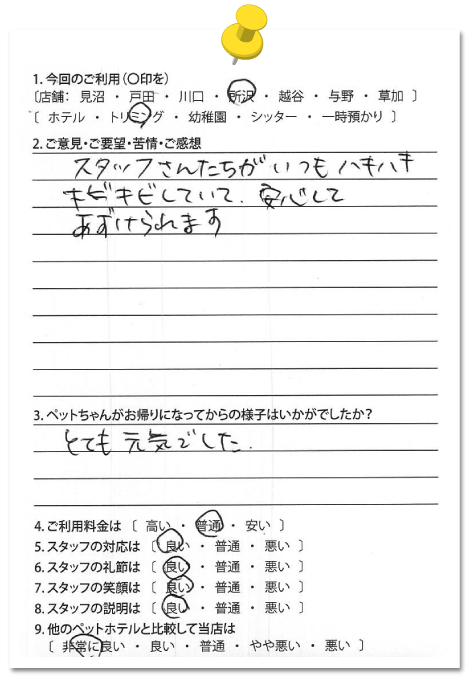 1. 今回のご利用(〇印を)
〔店舗: 見沼 ・ 戸田 ・ 川口 ・ 所沢 ・ 越谷 ・ 与野 ・ 草加 〕
〔 ホテル ・ トリミング ・ 幼稚園 ・ シッター ・ 一時預かり 〕
2. ご意見・ご要望・苦情・ご感想
スタッフさんたちがいつもハキハキ
キビキビしていて、安心して
あずけられます
3. ペットちゃんがお帰りになってからの様子はいかがでしたか?
とても元気でした.
4. ご利用料金は 〔 高い ・ 普通 ・ 安い 〕
5. スタッフの対応は 〔 良い ・ 普通 ・ 悪い 〕
6. スタッフの礼節は 〔 良い ・ 普通 ・ 悪い 〕
7. スタッフの笑顔は 〔 良い ・ 普通 ・ 悪い 〕
8. スタッフの説明は 〔 良い ・ 普通 ・ 悪い 〕
9. 他のペットホテルと比較して当店は
〔 非常に良い ・ 良い ・ 普通 ・ やや悪い ・ 悪い 〕